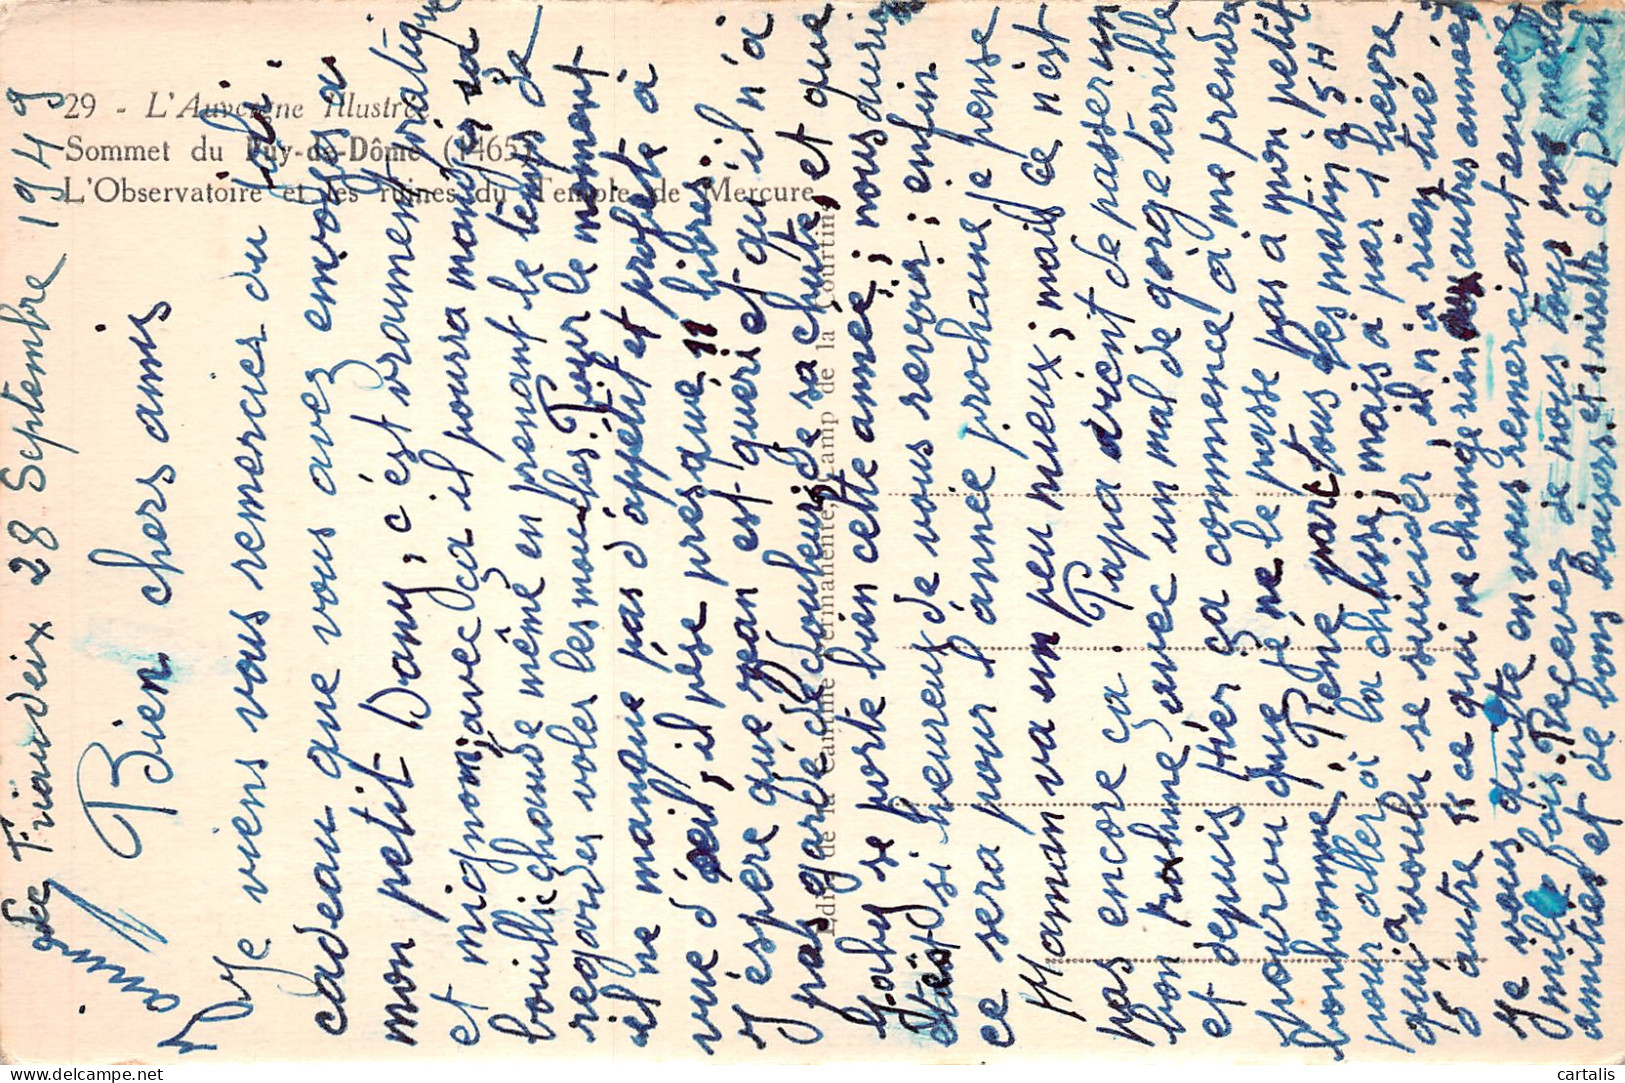 29 - L'Auvergne Illustrée
Sommet du Puy-de-Dôme (1465)
L'Observatoire et les ruines du Temple de Mercure
Edit. de la Cantine Permanente, Camp de la Courtine
28 Septembre 1949
Bien chers amis
Je viens vous remercier du joli
cadeau que vous avez envoyé a
mon petit Dany, c'est vraiment pratique
et mignon, avec ça il pourra manger sa
bouillie chaude même en prenant le temps de
regarder voler les mouches. Pour le moment
il ne manque pas d'appétit et profite à
vue d'œil, il pèse presque 11 livres.
J'espère que est guéri et qu'il n'a
pas gardé de douleurs de sa chute, et que
Gaby se porte bien cette année; nous aurions
été si heureux de vous revoir; enfin
ce sera pour l'année prochaine je pense
Maman va un peu mieux; mais ce n'est
pas encore ça. Papa vient de passer un
bon rhume avec un mal de gorge terrible
et depuis hier ça commence à me prendre
pourvu que je ne le passe pas à mon petit
bonhomme. René part tous les matin à 5H
pour aller à la chasse; mais à par 1 lièvre
qui a voulu se suicider, il n'a rien tué
d'autre ce qui ne change rien aux autres années
Je vous quitte en vous remerciant encore
mille fois. Recevez de nous tous nos meilleures
amitiés et de bons baisers et risette de Daniel
cartalis